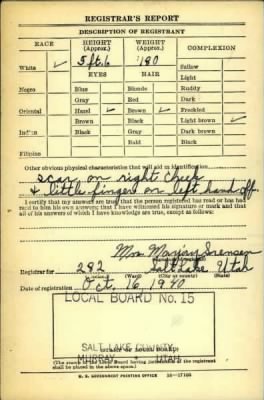 REGISTRAR'S REPORT
DESCRIPTION OF REGISTRANT
RACE HEIGHT (Approx.) WEIGHT (Approx.) COMPLEXION
White ✓ 5 ft. 6 180 Sallow
EYES HAIR Light
Negro Blue Blonde Ruddy
Gray Red Dark
Oriental Hazel ✓ Brown ✓ Freckled
Brown Black Light brown ✓
Indian Black Gray Dark brown
Bald Black
Filipino
Other obvious physical characteristics that will aid in identification
scar on right cheek
& little finger on left hand off.
I certify that my answers are true; that the person registered has read or has had read to him his own answers; that I have witnessed his signature or mark and that all of his answers of which I have knowledge are true, except as follows:
Mrs Marjory Sorensen
Registrar for 282 Salt Lake Utah
Date of registration Oct. 16, 1940
LOCAL BOARD No. 15
SALT LAKE COUNTY
MURRAY UTAH
(The stamp of the Local Board having jurisdiction of the registrant shall be placed in the above space.)
U. S. GOVERNMENT PRINTING OFFICE 16—17105